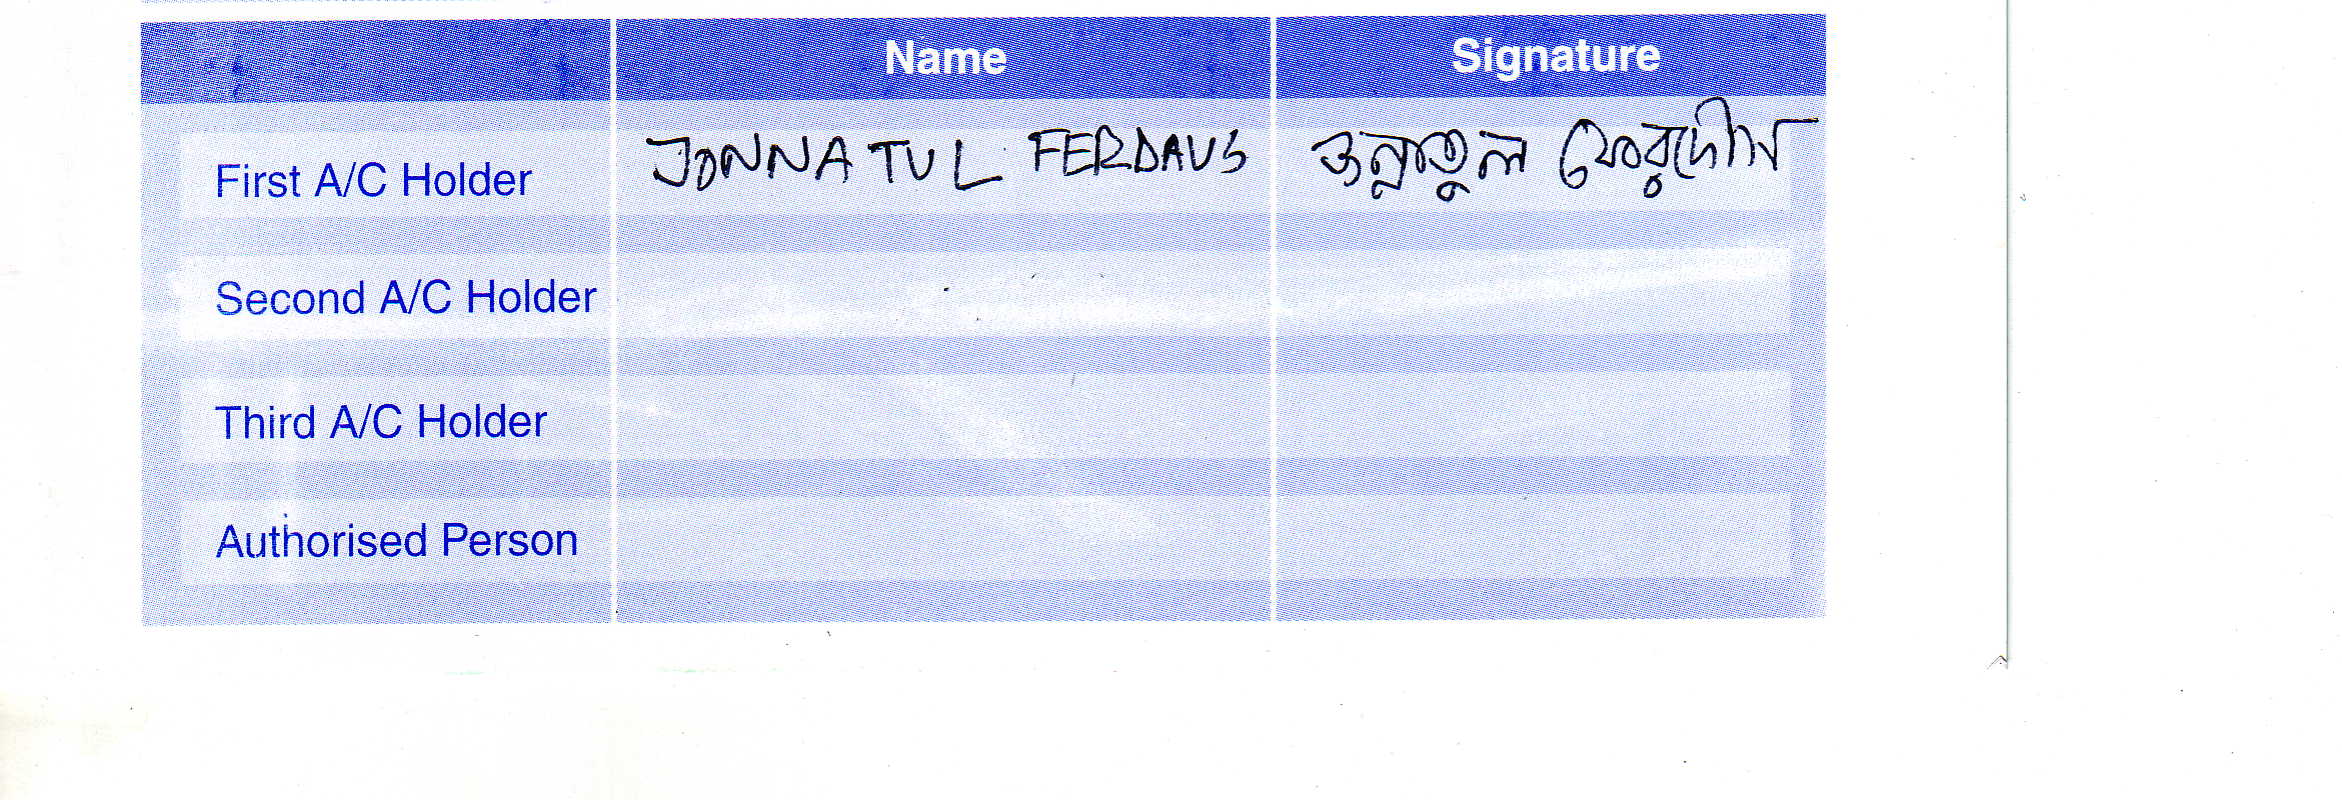 Name Signature
First A/C Holder JONNATUL FERDAUS জান্নাতুল ফেরদৌস
Second A/C Holder
Third A/C Holder
Authorised Person